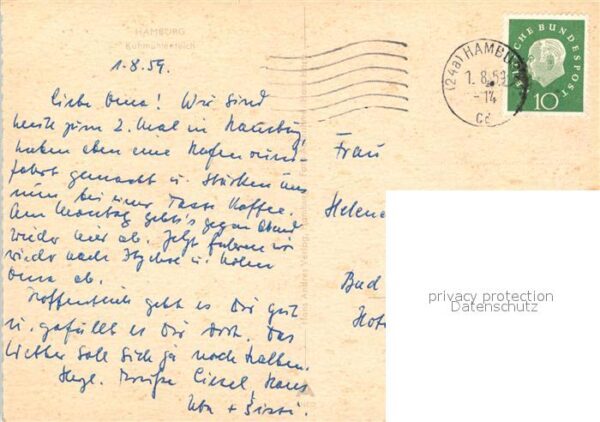 HAMBURG
Kuhmühlenteich
1.8.59.
Liebe Oma! Wir sind
heute zum 2. Mal in Hamburg,
haben eben eine Hafenrund-
fahrt gemacht u. stärken uns
nun bei einer Tasse Kaffee.
Am Montag geht's gegen Abend
wieder hier ab. Jetzt fahren wir
wieder nach u. holen
Oma ab.
Hoffentlich geht es Dir gut
u. gefällt es Dir dort. Das
Wetter soll sich ja noch halten.
Herzl. Grüße Liesel, Hans
Uta +
Frau
Helene
Bad
Hote
(24a) HAMBURG
1. 8. 59
-14
cd
DEUTSCHE BUNDESPOST
10
privacy protection
Datenschutz